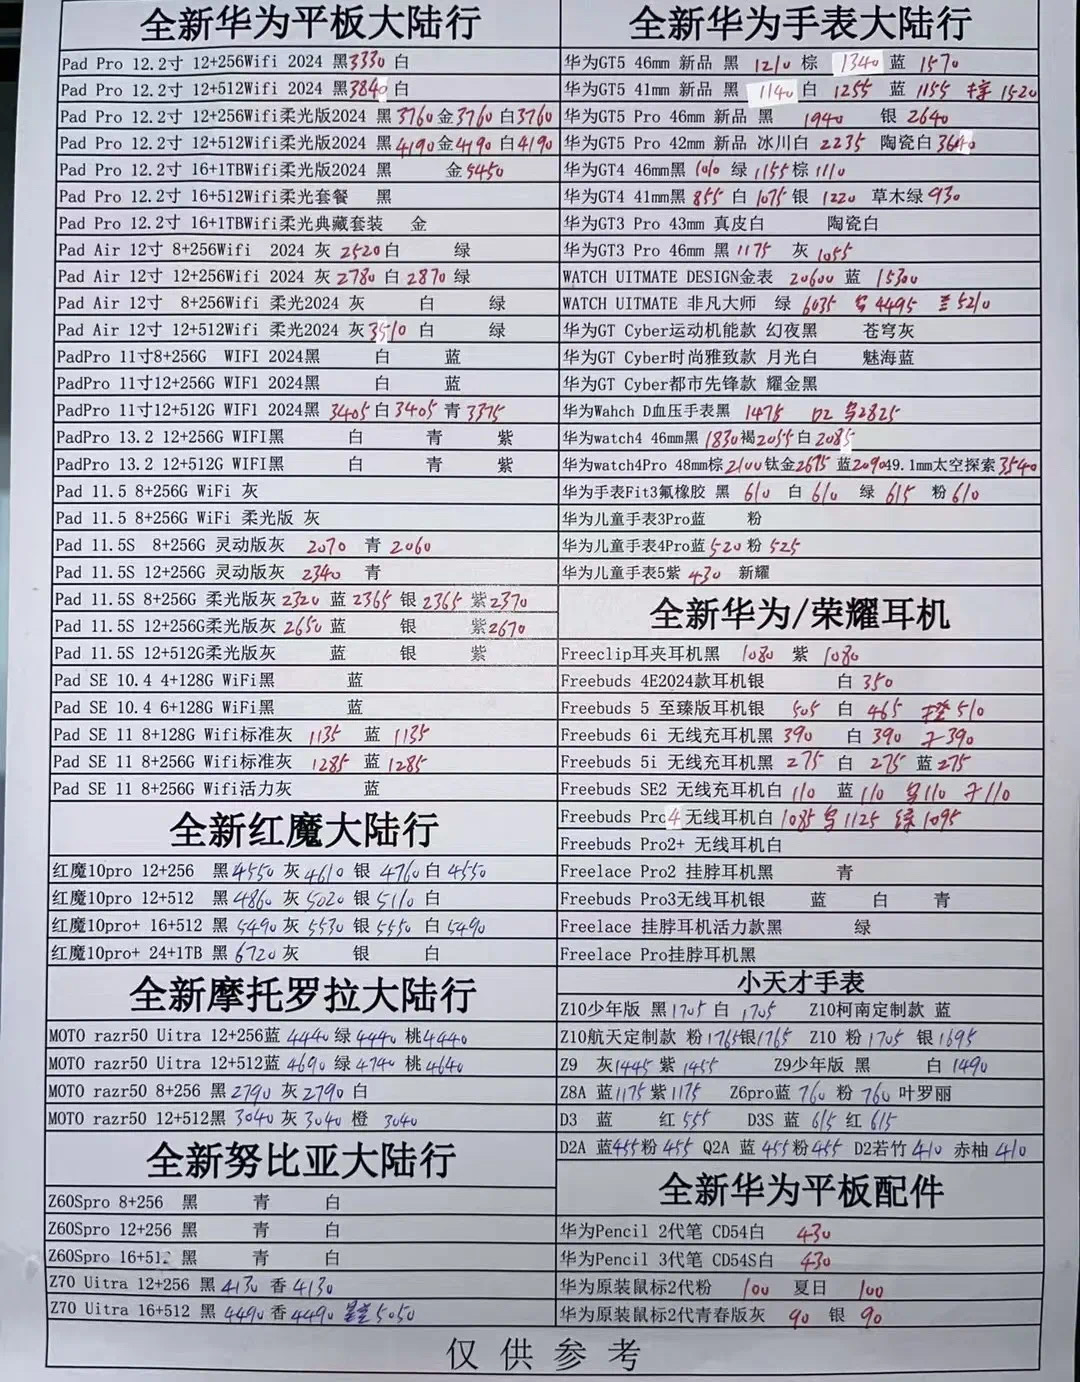 全新华为平板大陆行
Pad Pro 12.2寸 12+256Wifi 2024 黑3330 白
Pad Pro 12.2寸 12+512Wifi 2024 黑3840 白
Pad Pro 12.2寸 12+256Wifi柔光版2024 黑3760金3760白3760
Pad Pro 12.2寸 12+512Wifi柔光版2024 黑4190金4190白4190
Pad Pro 12.2寸 16+1TBWifi柔光版2024 黑 金5450
Pad Pro 12.2寸 16+512Wifi柔光套餐 黑
Pad Pro 12.2寸 16+1TBWifi柔光典藏套装 金
Pad Air 12寸 8+256Wifi 2024 灰 2520 白 绿
Pad Air 12寸 12+256Wifi 2024 灰 2780 白 2870 绿
Pad Air 12寸 8+256Wifi 柔光2024 灰 白 绿
Pad Air 12寸 12+512Wifi 柔光2024 灰3510 白 绿
PadPro 11寸8+256G WIFI 2024黑 白 蓝
PadPro 11寸12+256G WIF1 2024黑 白 蓝
PadPro 11寸12+512G WIF1 2024黑 3405白3405 青3375
PadPro 13.2 12+256G WIFI黑 白 青 紫
PadPro 13.2 12+512G WIFI黑 白 青 紫
Pad 11.5 8+256G WiFi 灰
Pad 11.5 8+256G WiFi 柔光版 灰
Pad 11.5S 8+256G 灵动版灰 2070 青 2060
Pad 11.5S 12+256G 灵动版灰 2340 青
Pad 11.5S 8+256G 柔光版灰2320 蓝2365 银2365 紫2370
Pad 11.5S 12+256G柔光版灰2650 蓝 银 紫2670
Pad 11.5S 12+512G柔光版灰 蓝 银 紫
Pad SE 10.4 4+128G WiFi黑 蓝
Pad SE 10.4 6+128G WiFi黑 蓝
Pad SE 11 8+128G Wifi标准灰 1135 蓝 1135
Pad SE 11 8+256G Wifi标准灰 1285 蓝 1285
Pad SE 11 8+256G Wifi活力灰 蓝
全新红魔大陆行
红魔10pro 12+256 黑4550 灰4610 银 4760白4550
红魔10pro 12+512 黑4860 灰5020 银5110 白
红魔10pro+ 16+512 黑 5490灰5530 银 5550 白5490
红魔10pro+ 24+1TB 黑6720灰 银 白
全新摩托罗拉大陆行
MOTO razr50 Uitra 12+256蓝 4440绿4440 桃4440
MOTO razr50 Uitra 12+512蓝 4690绿4740 桃4640
MOTO razr50 8+256 黑2790 灰2790白
MOTO razr50 12+512黑3040灰3040橙 3040
全新努比亚大陆行
Z60Spro 8+256 黑 青 白
Z60Spro 12+256 黑 青 白
Z60Spro 16+512 黑 青 白
Z70 Uitra 12+256 黑 4130 香4130
Z70 Uitra 16+512 黑 4490香4490 星空5050
全新华为手表大陆行
华为GT5 46mm 新品 黑 1210 棕 1340 蓝 1570
华为GT5 41mm 新品 黑 1140 白 1255 蓝 1155 1520
华为GT5 Pro 46mm 新品 黑 1940 银 2640
华为GT5 Pro 42mm 新品 冰川白 2235 陶瓷白3640
华为GT4 46mm黑 1010 绿 1155棕1110
华为GT4 41mm黑855 白1075银 1220 草木绿930
华为GT3 Pro 43mm 真皮白 陶瓷白
华为GT3 Pro 46mm 黑1175 灰 1055
WATCH UITMATE DESIGN金表 20600 蓝 15300
WATCH UITMATE 非凡大师 绿 6035 4495 兰5210
华为GT Cyber运动机能款 幻夜黑 苍穹灰
华为GT Cyber时尚雅致款 月光白 魅海蓝
华为GT Cyber都市先锋款 耀金黑
华为Wahch D血压手表黑 1475 D2 2825
华为watch4 46mm黑1830褐2055白2085
华为watch4Pro 48mm棕2100钛金2675 蓝209049.1mm太空探索3540
华为手表Fit3氟橡胶 黑 610 白 610 绿 615 粉610
华为儿童手表3Pro蓝 粉
华为儿童手表4Pro蓝520粉 525
华为儿童手表5紫 430 新耀
全新华为/荣耀耳机
Freeclip耳夹耳机黑 1080 紫 1080
Freebuds 4E2024款耳机银 白350
Freebuds 5 至臻版耳机银 505 白 465 橙510
Freebuds 6i 无线充耳机黑 390 白390 390
Freebuds 5i 无线充耳机黑 275 白 275 蓝275
Freebuds SE2 无线充耳机白 110 蓝110 110 110
Freebuds Pro4无线耳机白1085 1125 绿1095
Freebuds Pro2+ 无线耳机白
Freelace Pro2 挂脖耳机黑 青
Freebuds Pro3无线耳机银 蓝 白 青
Freelace 挂脖耳机活力款黑 绿
Freelace Pro挂脖耳机黑
小天才手表
Z10少年版 黑1705白 1705 Z10柯南定制款 蓝
Z10航天定制款 粉1765银1765 Z10 粉1705 银1695
Z9 灰1445紫1455 Z9少年版 黑 白 1490
Z8A 蓝1175紫1175 Z6pro蓝 760 粉 760 叶罗丽
D3 蓝 红555 D3S 蓝 615红 615
D2A 蓝455粉455 Q2A 蓝 455粉455 D2若竹410 赤柚410
全新华为平板配件
华为Pencil 2代笔 CD54白 430
华为Pencil 3代笔 CD54S白 430
华为原装鼠标2代粉 100 夏日 100
华为原装鼠标2代青春版灰 90 银 90
仅供参考